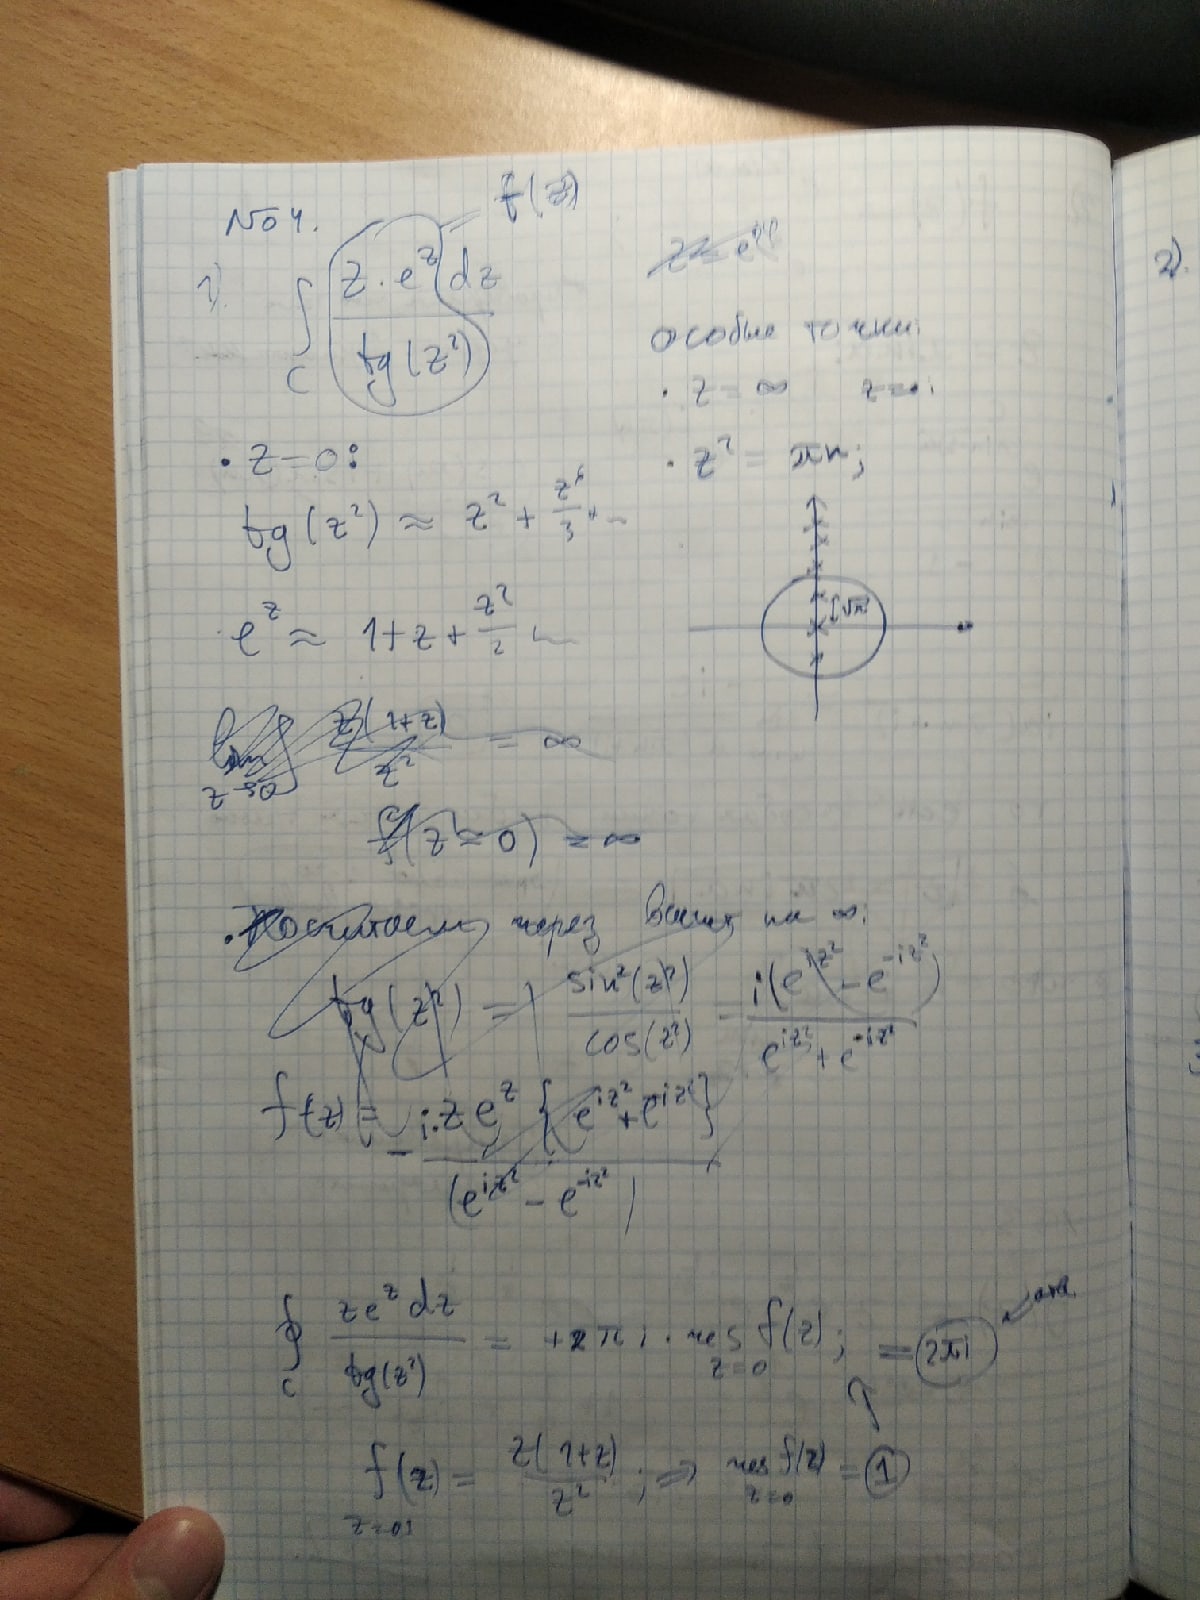 №4.
f(z)
1). ∫_C z·e^z dz / tg(z²)
z = e^{iφ}
особые точки:
· z = ∞ z=0;
· z² = πn;
· z=0:
tg(z²) ≈ z² + z⁶/3 + ...
√π
e^z ≈ 1+z+ z²/2 ...
lim_{z→0} z(1+z)/z² = ∞
f(z=0) = ∞
· Посчитаем через вычет на ∞:
tg(z²) = sin²(z²)/cos(z²) = i(e^{iz²} - e^{-iz²}) / e^{iz²} + e^{-iz²}
f(z) = - i·z e^z {e^{iz²} + e^{-iz²}} / (e^{iz²} - e^{-iz²})
∮_C z e^z dz / tg(z²) = +2πi · res_{z=0} f(z); = 2πi
f(z)_{z=0} = z(1+z)/z² ; ⇒ res_{z=0} f(z) = 1
2).